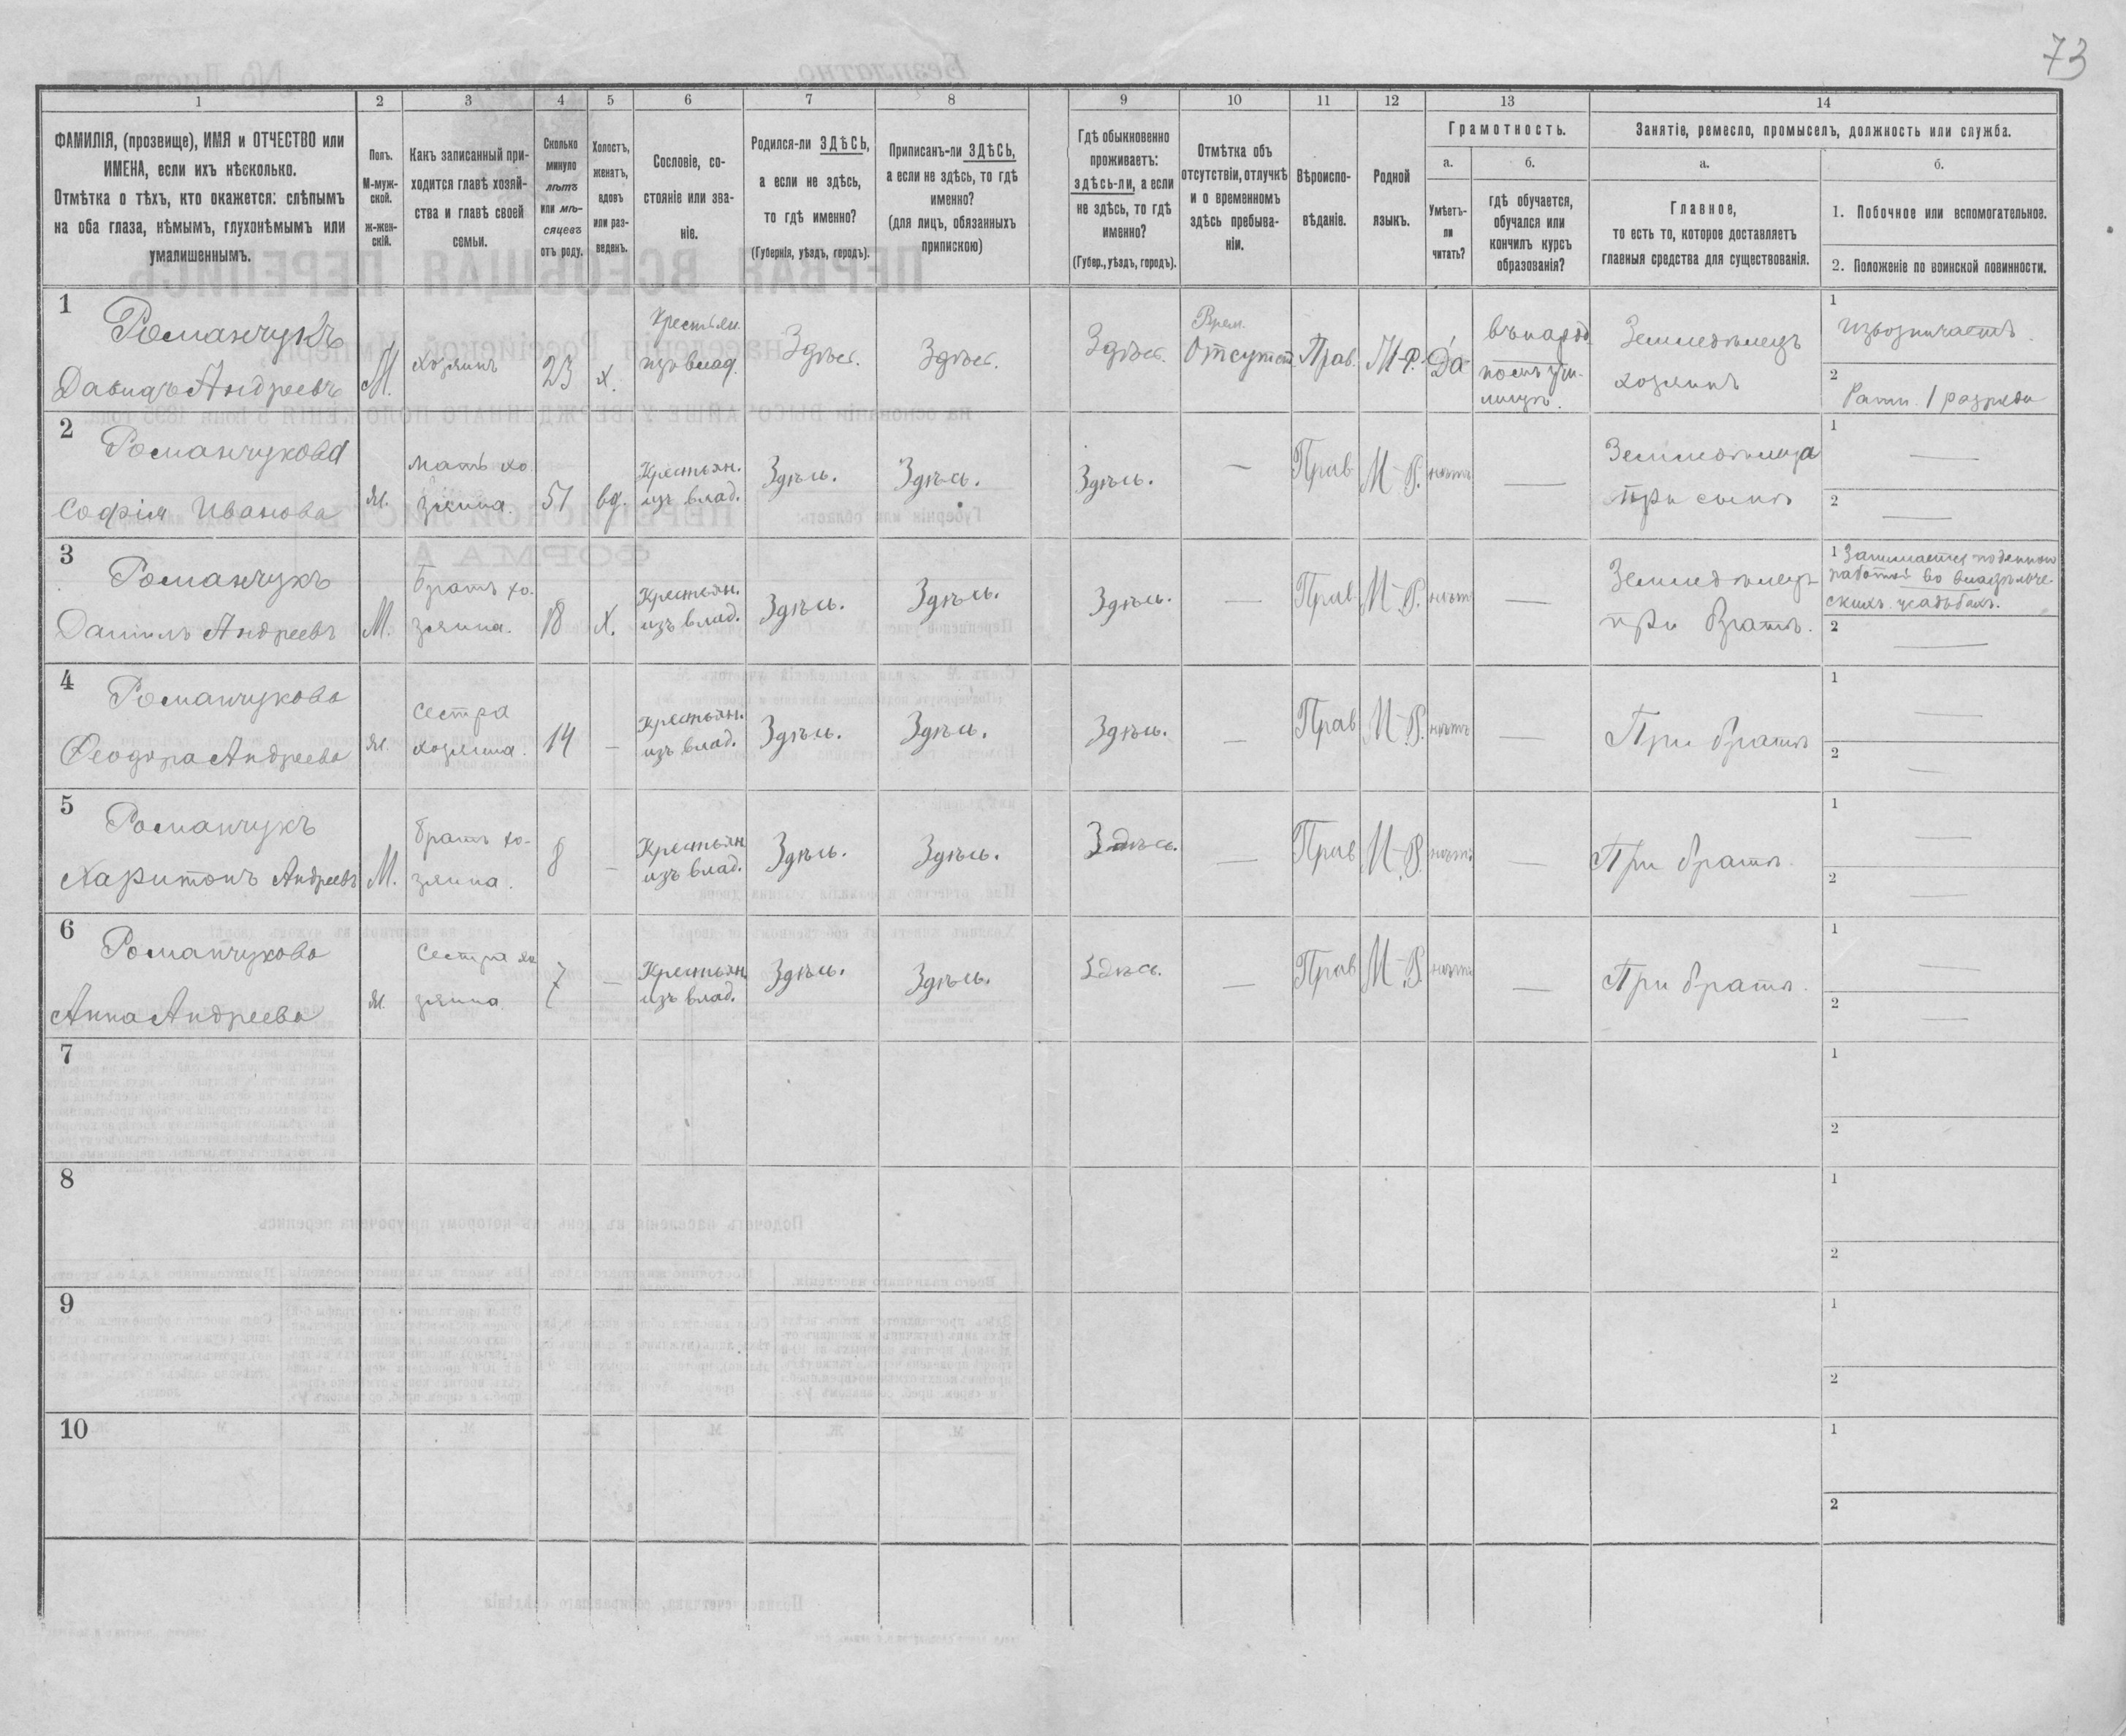 73
1
2
3
4
5
6
7
8
9
10
11
12
13
14
ФАМИЛІЯ, (прозвище), ИМЯ и ОТЧЕСТВО или
ИМЕНА, если ихъ нѣсколько.
Отмѣтка о тѣхъ, кто окажется: слѣпымъ
на оба глаза, нѣмымъ, глухонѣмымъ или
умалишеннымъ.
Полъ.
М-муж-
ской.
Ж-жен-
скій.
Какъ записанный при-
ходится главѣ хозяй-
ства и главѣ своей
семьи.
Сколько
минуло
лѣтъ
или мѣ-
сяцевъ
отъ роду.
Холостъ,
женатъ,
вдовъ
или раз-
веденъ.
Сословіе, со-
стояніе или зва-
ніе.
Родился-ли ЗДѢСЬ,
а если не здѣсь,
то гдѣ именно?
(Губернія, уѣздъ, городъ).
Приписанъ-ли ЗДѢСЬ,
а если не здѣсь, то гдѣ
именно?
(для лицъ, обязанныхъ
припискою)
Гдѣ обыкновенно
проживаетъ:
здѣсь-ли, а если
не здѣсь, то гдѣ
именно?
(Губер., уѣздъ, городъ).
Отмѣтка объ
отсутствіи, отлучкѣ
и о временномъ
здѣсь пребыва-
ніи.
Вѣроиспо-
вѣданіе.
Родной
языкъ.
Грамотность.
а.
Умѣетъ-
ли
читать?
б.
гдѣ обучается,
обучался или
кончилъ курсъ
образованія?
Занятіе, ремесло, промыселъ, должность или служба.
а.
Главное,
то есть то, которое доставляетъ
главныя средства для существованія.
б.
1. Побочное или вспомогательное.
2. Положеніе по воинской повинности.
1
Романчукъ
Давидъ Андреевъ
М.
хозяинъ
23
х.
Крестьян.
изъ влад.
Здѣсь.
Здѣсь.
Здѣсь.
Врем.
Отсутст.
Прав.
М-Р.
Да
въ народ
номъ учи-
лищѣ.
Земледѣлецъ
хозяинъ
1
Извозничаетъ.
2
Ратн. 1 разряда
2
Романчукова
Софія Иванова
Ж.
мать хо
зяина.
51
вд.
Крестьян.
изъ влад.
Здѣсь.
Здѣсь.
Здѣсь.
—
Прав
М-Р.
нѣтъ
—
Земледѣлица
при сынѣ
1
—
2
—
3
Романчукъ
Даниилъ Андреевъ
М.
братъ хо-
зяина.
18
х.
Крестьян.
изъ влад.
Здѣсь.
Здѣсь.
Здѣсь.
—
Прав
М-Р.
нѣтъ
—
Земледѣлецъ
при братѣ.
1 Занимается поденною
работой во владѣльче-
скихъ усадьбахъ.
2
—
4
Романчукова
Феодора Андреева
Ж.
сестра
хозяина.
14
—
Крестьян.
изъ влад.
Здѣсь.
Здѣсь.
Здѣсь.
—
Прав
М-Р.
нѣтъ
—
При братѣ
1
—
2
—
5
Романчукъ
Харитонъ Андреевъ
М.
братъ хо-
зяина.
8
—
Крестьян
изъ влад.
Здѣсь.
Здѣсь.
Здѣсь.
—
Прав
М-Р.
нѣтъ
—
При братѣ.
1
—
2
—
6
Романчукова
Анна Андреева
Ж.
Сестра хо
зяина
7
—
Крестьян.
изъ влад.
Здѣсь.
Здѣсь.
Здѣсь.
—
Прав
М-Р.
нѣтъ
—
При братѣ.
1
—
2
—
7
1
2
8
1
2
9
1
2
10
1
2